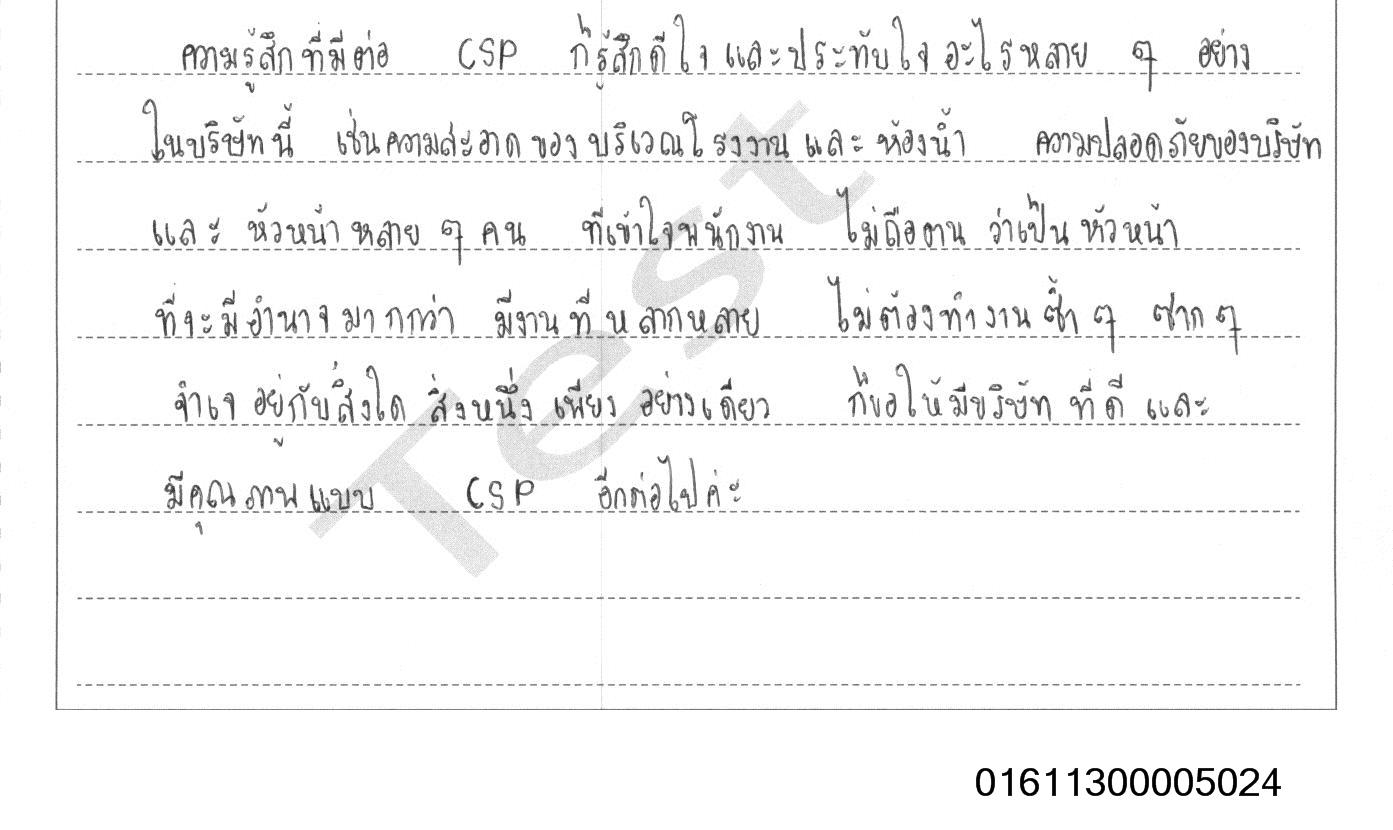 ความรู้สึกที่มีต่อ CSP ก็รู้สึกดีใจและประทับใจอะไรหลาย ๆ อย่าง
ในบริษัทนี้ เช่นความสะอาดของบริเวณโรงงานและห้องน้ำ ความปลอดภัยของบริษัท
และ หัวหน้าหลาย ๆ คน ที่เข้าใจพนักงาน ไม่ถือตนว่าเป็นหัวหน้า
ที่จะมีอำนาจมากกว่า มีงานที่หลากหลาย ไม่ต้องทำงานซ้ำ ๆ ซาก ๆ
จำเจ อยู่กับสิ่งใด สิ่งหนึ่ง เพียง อย่างเดียว ก็ขอให้มีบริษัท ที่ดี และ
มีคุณภาพแบบ CSP อีกต่อไปค่ะ
Test
01611300005024